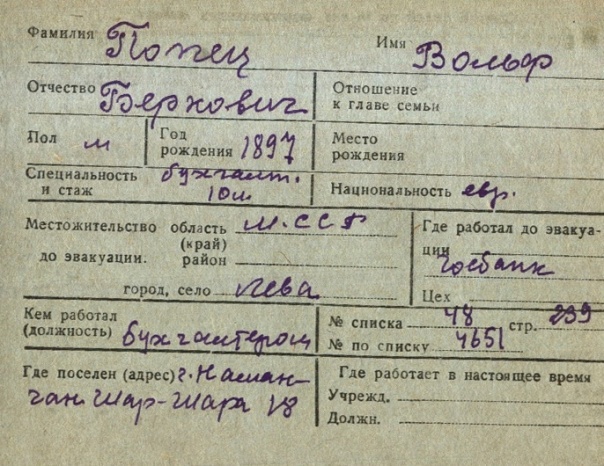 Фамилия Понец Имя Вольф
Отчество Беркович
Отношение
к главе семьи
Пол м
Год
рождения 1897
Место
рождения
Специальность
и стаж бухгалт.
10 л.
Национальность евр.
Местожительство область М.ССР
(край)
до эвакуации. район
город, село Лева
Где работал до эвакуа-
ции
Госбанк
Цех
Кем работал
(должность) бухгалтером
№ списка 48 стр. 239
№ по списку 4651
Где поселен (адрес) г. Наман-
ган Шар-Шара 18
Где работает в настоящее время
Учрежд.
Должн.